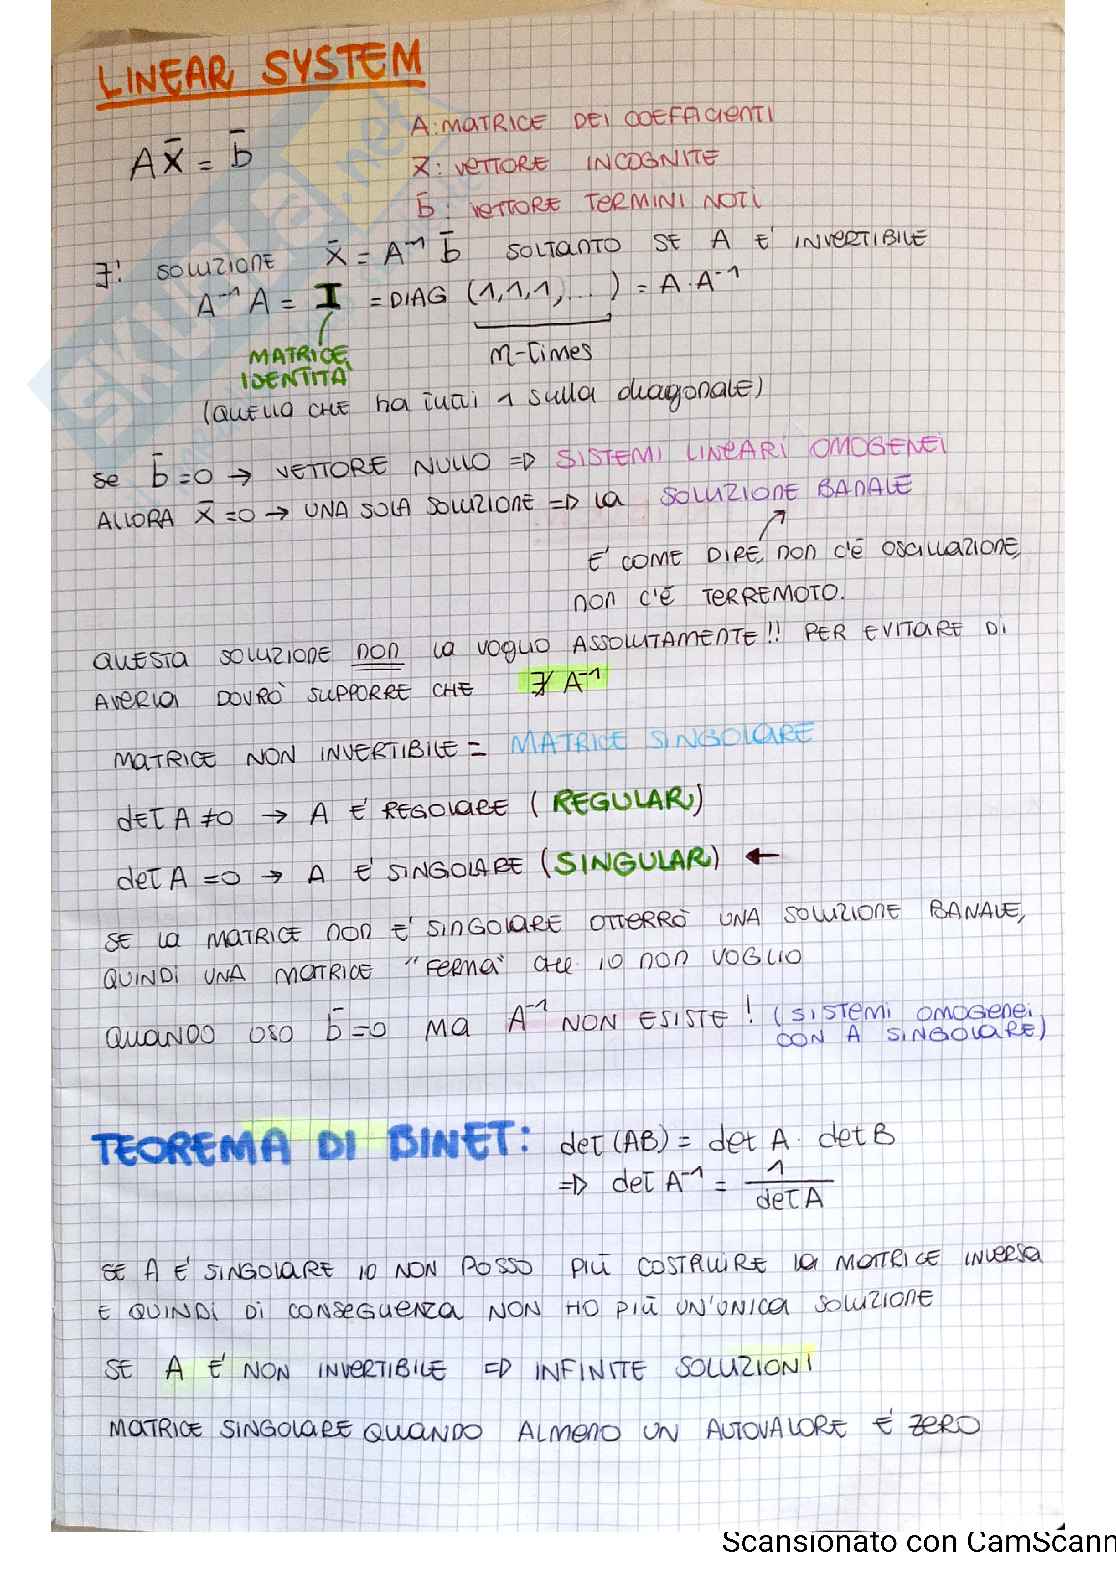 LINEAR SYSTEM
A x̄ = b̄
A: MATRICE DEI COEFFICIENTI
x̄: VETTORE INCOGNITE
b̄: VETTORE TERMINI NOTI
∃! SOLUZIONE x̄ = A⁻¹ b̄ SOLTANTO SE A E' INVERTIBILE
A⁻¹ A = I = DIAG (1,1,1,...) = A · A⁻¹
MATRICE IDENTITÀ
n-times
(QUELLO CHE ha tutti 1 sulla diagonale)
Se b̄=0 → VETTORE NULLO ⇒ SISTEMI LINEARI OMOGENEI
ALLORA x̄=0 → UNA SOLA SOLUZIONE ⇒ la SOLUZIONE BANALE
E' COME DIRE, non c'è OSCILLAZIONE,
non c'è TERREMOTO.
QUESTA SOLUZIONE non LA VOGLIO ASSOLUTAMENTE!! PER EVITARE DI
AVERLA DOVRÒ SUPPORRE CHE ∄ A⁻¹
MATRICE NON INVERTIBILE = MATRICE SINGOLARE
det A ≠0 → A E' REGOLARE (REGULAR)
det A =0 → A E' SINGOLARE (SINGULAR) ←
SE LA MATRICE non E' SINGOLARE OTTERRÒ UNA SOLUZIONE BANALE,
QUINDI UNA MATRICE "FERMA" che IO non VOGLIO
QUANDO USO b̄=0 MA A⁻¹ NON ESISTE! (SISTEMI OMOGENEI
CON A SINGOLARE)
TEOREMA DI BINET: det (AB) = det A · det B
⇒ det A⁻¹ = 1 / det A
SE A E' SINGOLARE IO NON POSSO PIÙ COSTRUIRE la MATRICE INVERSA
E QUINDI DI CONSEGUENZA NON HO PIÙ UN'UNICA SOLUZIONE
SE A E' NON INVERTIBILE ⇒ INFINITE SOLUZIONI
MATRICE SINGOLARE QUANDO ALMENO UN AUTOVALORE È ZERO
Scansionato con CamScann